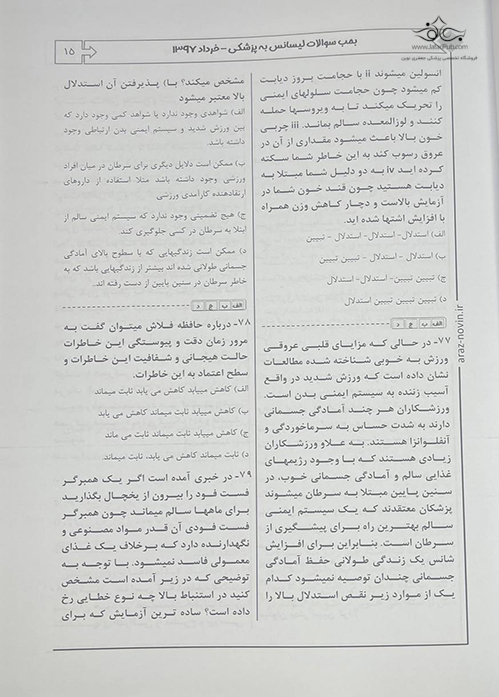 بمب سوالات لیسانس به پزشکی – خرداد ۱۳۹۷
۱۵
www.JafariPub.com
فروشگاه تخصصی پزشکی جعفری نوین
انسولین میشوند ii با حجامت بروز دیابت
کم میشود چون حجامت سلولهای ایمنی
را تحریک میکند تا به ویروسها حمله
کنند و لوزالمعده سالم بماند. iii چربی
خون بالا باعث میشود مقداری از آن در
عروق رسوب کند به این خاطر شما سکته
کرده اید iv به دو دلیل شما مبتلا به
دیابت هستید چون قند خون شما در
آزمایش بالاست و دچار کاهش وزن همراه
با افزایش اشتها شده اید.
الف) استدلال- استدلال- استدلال - تبیین
ب) استدلال - استدلال - تبیین تبیین
ج) تبیین تبیین- استدلال- استدلال
د) تبیین تبیین تبیین استدلال
الف ب ج د
۷۷- در حالی که مزایای قلبی عروقی
ورزش به خوبی شناخته شده مطالعات
نشان داده است که ورزش شدید در واقع
آسیب زننده به سیستم ایمنی بدن است.
ورزشکاران هر چند آمادگی جسمانی
دارند به شدت حساس به سرماخوردگی و
آنفلوانزا هستند. به علاو ورزشکاران
زیادی هستند که با وجود رژیمهای
غذایی سالم و آمادگی جسمانی خوب، در
سنین پایین مبتلا به سرطان میشوند
پزشکان معتقدند که یک سیستم ایمنی
سالم بهترین راه برای پیشگیری از
سرطان است. بنابراین برای افزایش
شانس یک زندگی طولانی حفظ آمادگی
جسمانی چندان توصیه نمیشود کدام
یک از موارد زیر نقص استدلال بالا را
مشخص میکند؟ با) پذیرفتن آن استدلال
بالا معتبر میشود
الف) شواهدی وجود ندارد یا شواهد کمی وجود دارد که
بین ورزش شدید و سیستم ایمنی بدن ارتباطی وجود
داشته باشد.
ب) ممکن است دلایل دیگری برای سرطان در میان افراد
ورزشی وجود داشته باشد مثلا استفاده از داروهای
ارتقادهنده کارآمدی ورزشی
ج) هیچ تضمینی وجود ندارد که سیستم ایمنی سالم از
ابتلا به سرطان در کسی جلوگیری کند.
د) ممکن است زندگیهایی که با سطوح بالای آمادگی
جسمانی طولانی شده اند بیشتر از زندگیهایی باشد که به
خاطر سرطان در سنین پایین از دست رفته اند.
الف ب ج د
۷۸- درباره حافظه فلاش میتوان گفت به
مرور زمان دقت و پیوستگی این خاطرات
حالت هیجانی و شفافیت این خاطرات و
سطح اعتماد به این خاطرات.
الف) کاهش مییابد کاهش می یابد ثابت میماند
ب) کاهش مییابد ثابت میماند کاهش می یابد
ج) کاهش مییابد ثابت میماند ثابت می ماند
د) ثابت میماند کاهش می یابد، ثابت میماند.
۷۹- در خبری آمده است اگر یک همبرگر
فست فود را بیرون از یخچال بگذارید
برای ماهها سالم میماند چون همبرگر
فست فودی آن قدر مواد مصنوعی و
نگهدارنده دارد که برخلاف یک غذای
معمولی فاسد نمیشود. با توجه به
توضیحی که در زیر آمده است مشخص
کنید در استنباط بالا چه نوع خطایی رخ
داده است؟ ساده ترین آزمایش که برای
araz-novin.ir